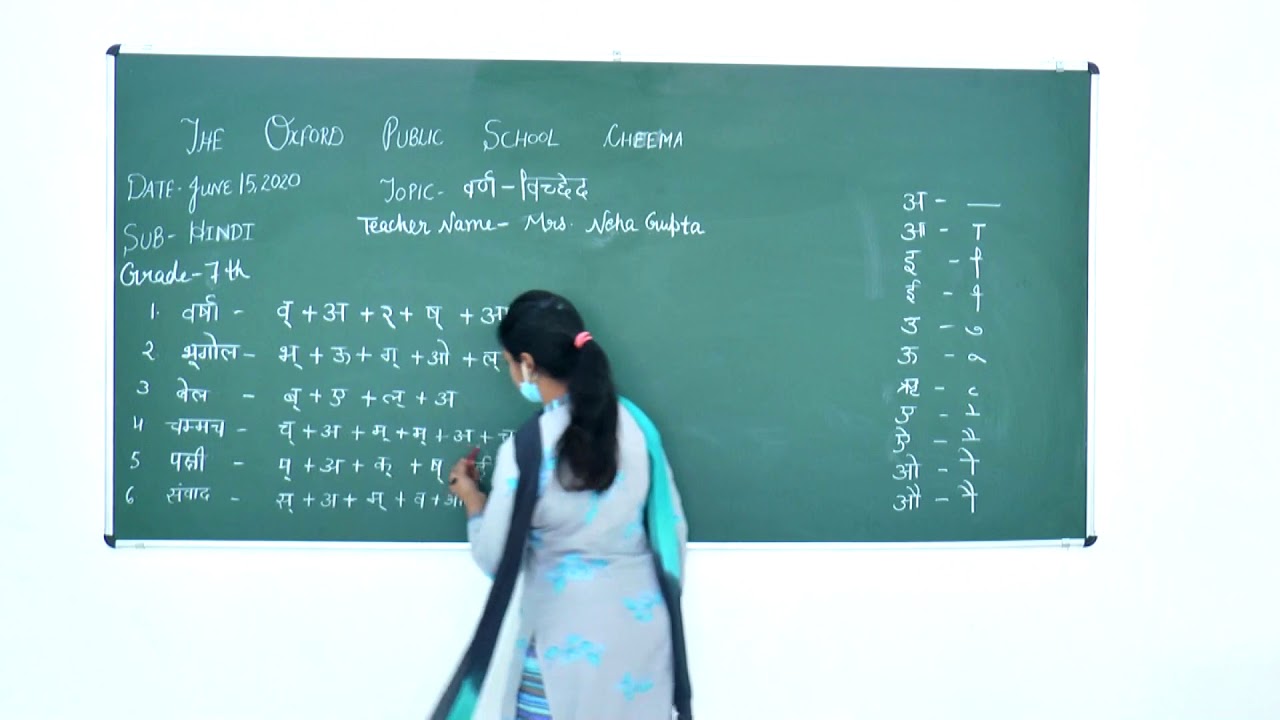 THE OXFORD PUBLIC SCHOOL CHEEMA
DATE- JUNE 15, 2020
TOPIC- वर्ण-विच्छेद
SUB- HINDI
Teacher Name- Mrs. Neha Gupta
Grade- 7th
1. वर्षा - व् + अ + र् + ष् + आ
2 भूगोल - भ् + ऊ + ग् + ओ + ल्
3 बेल - ब् + ए + ल् + अ
4 चम्मच - च् + अ + म् + म् + अ + च
5 पक्षी - प् + अ + क् + ष् ई
6 संवाद - स् + अ + म् + व + आ
अ - —
आ - ा
इ - ि
ई - ी
उ - ु
ऊ - ू
ऋ - ृ
ए - े
ऐ - ै
ओ - ो
औ - ौ